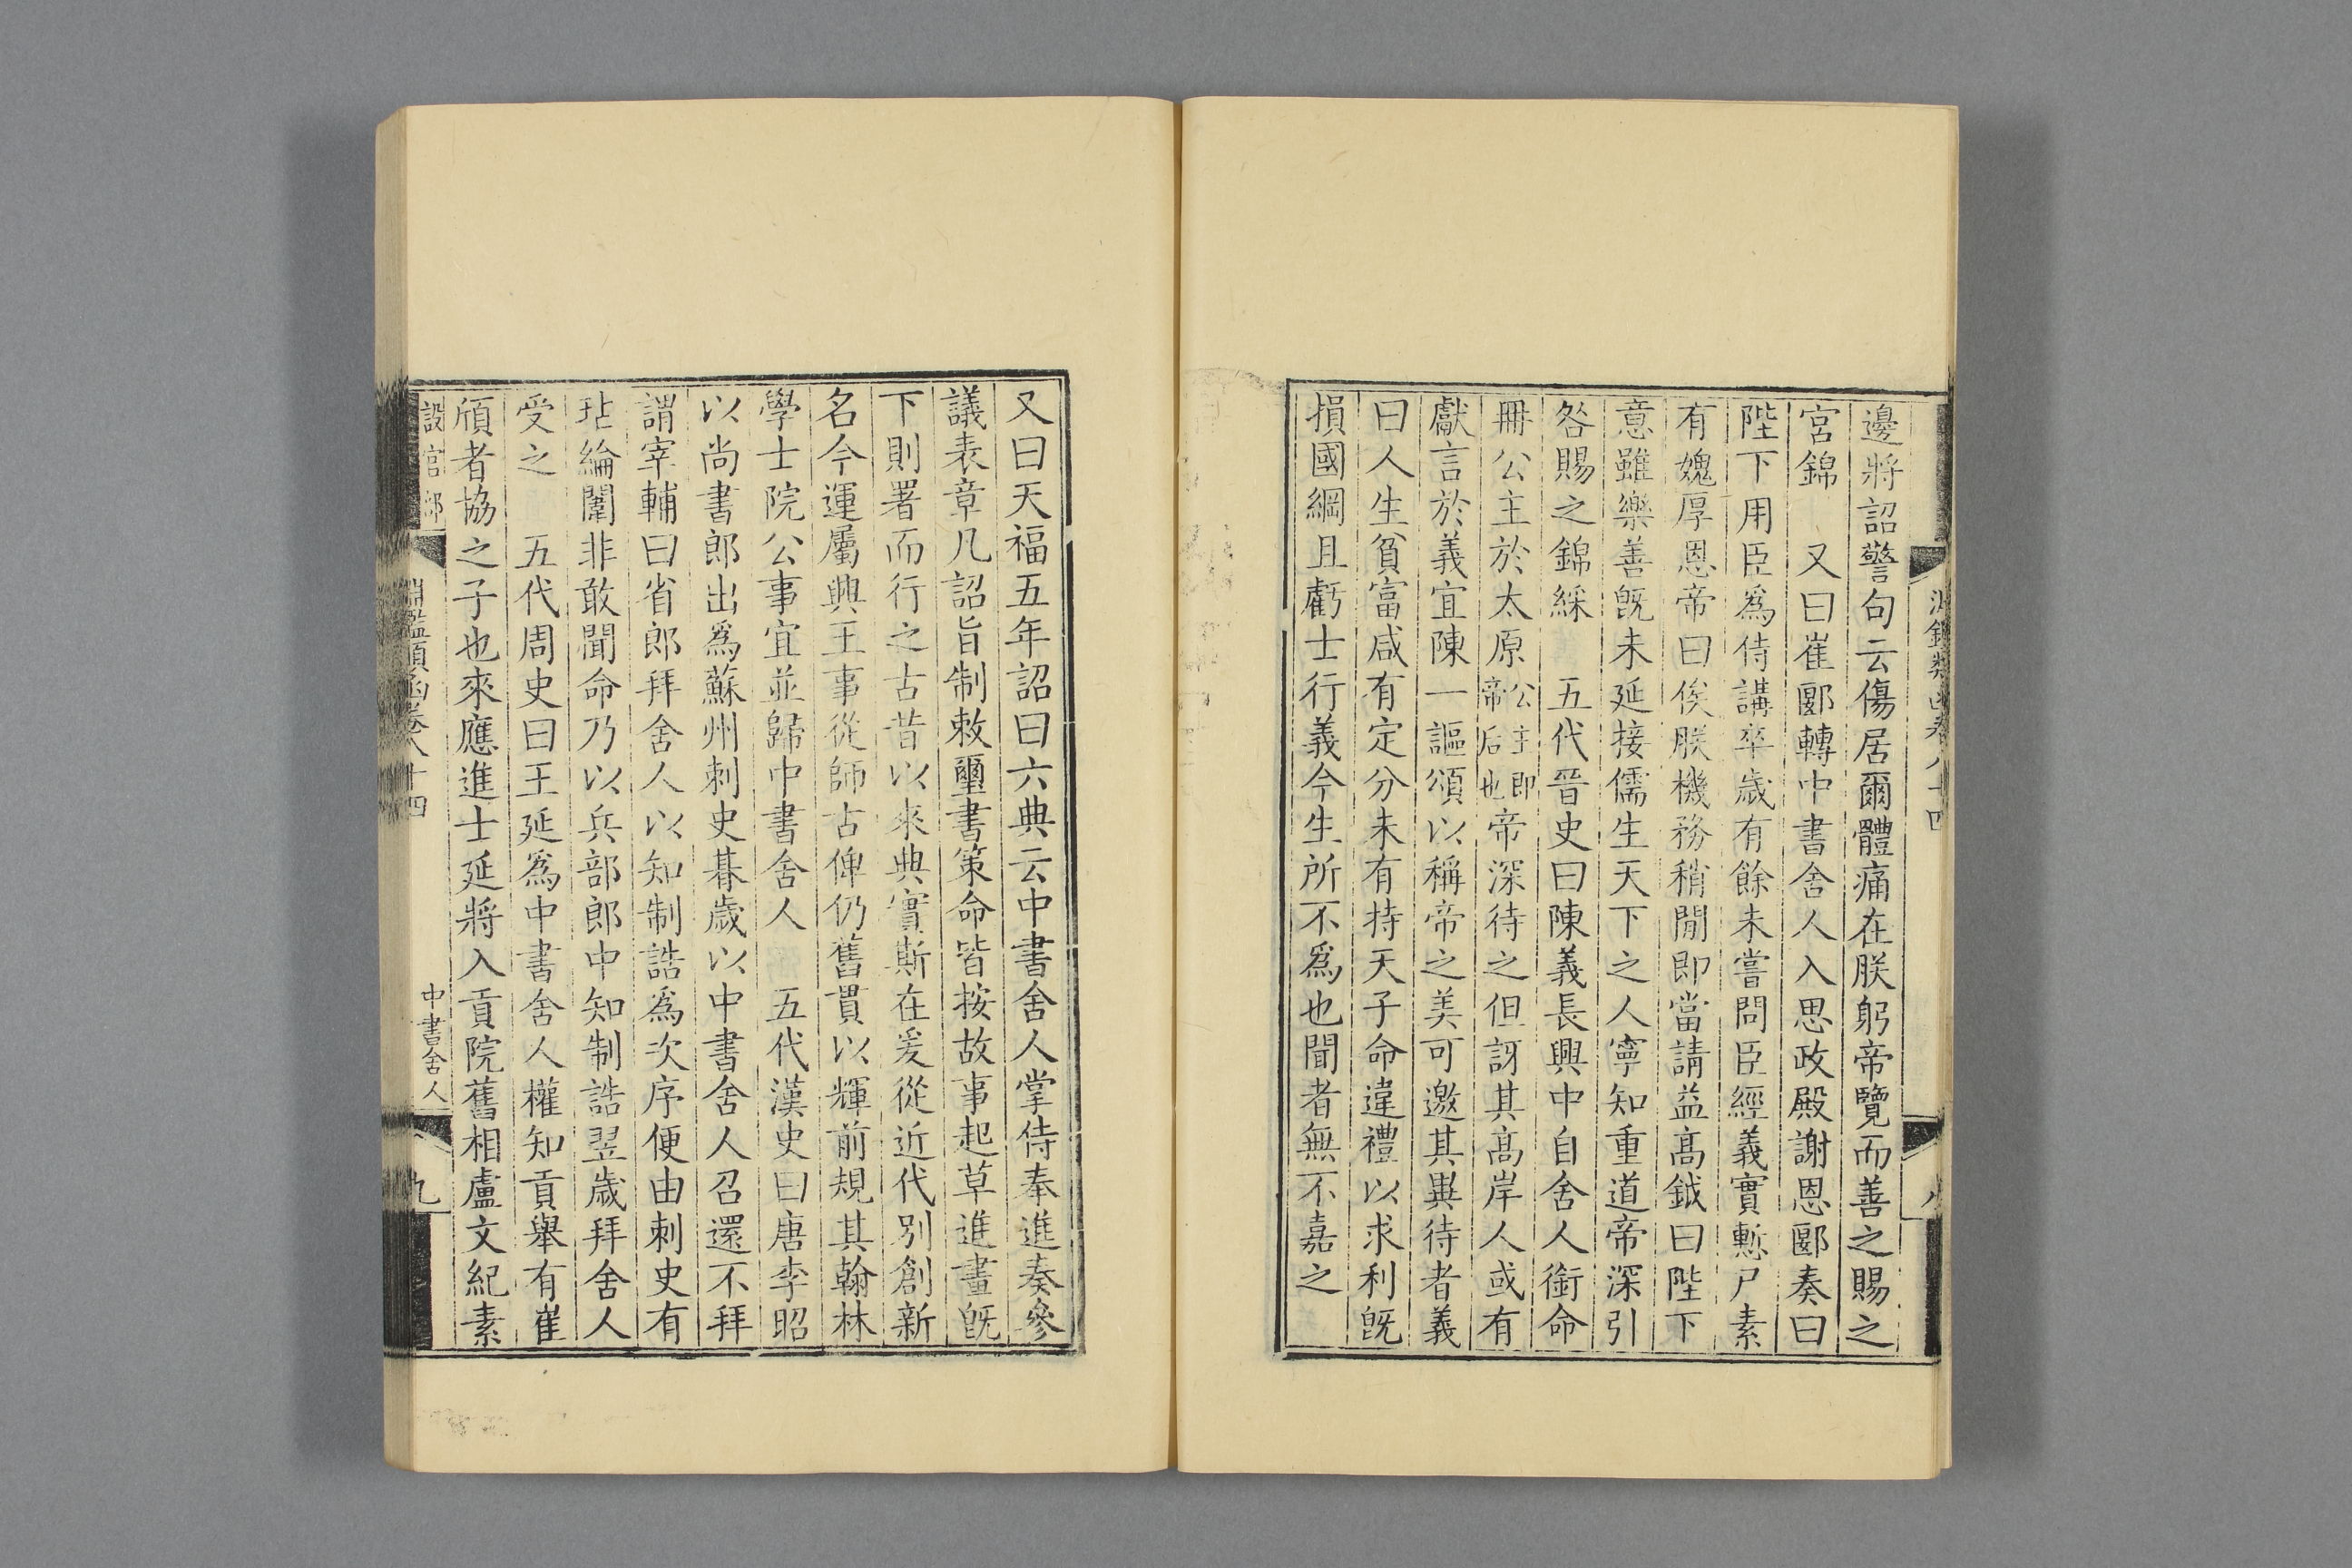 邊將詔警句云傷居爾體痛在朕躬帝覽而善之賜之
宮錦　又曰崔郾轉中書舍人入思政殿謝恩郾奏曰
陛下用臣爲侍講卒歲有餘未嘗問臣經義實慙尸素
有媿厚恩帝曰俟朕機務稍閒即當請益高釴曰陛下
意雖樂善旣未延接儒生天下之人寧知重道帝深引
咎賜之錦綵　五代晉史曰陳義長興中自舍人銜命
冊公主於太原公主即帝后也帝深待之但訝其高岸人或有
獻言於義宜陳一謳頌以稱帝之美可邀其異待者義
曰人生貧富咸有定分未有持天子命違禮以求利旣
損國綱且虧士行義今生所不爲也聞者無不嘉之
又曰天福五年詔曰六典云中書舍人掌侍奉進奏參
議表章凡詔旨制敕璽書策命皆按故事起草進畫旣
下則署而行之古昔以來典實斯在爰從近代別創新
名今運屬興王事從師古俾仍舊貫以輝前規其翰林
學士院公事宜並歸中書舍人　五代漢史曰唐李昭
以尚書郎出爲蘇州刺史朞歲以中書舍人召還不拜
謂宰輔曰省郎拜舍人以知制誥爲次序便由刺史有
玷綸闈非敢聞命乃以兵部郎中知制誥翌歲拜舍人
受之　五代周史曰王延爲中書舍人權知貢舉有崔
頎者協之子也來應進士延將入貢院舊相盧文紀素
設官部　淵鑑類函卷八十四　中書舍人　九